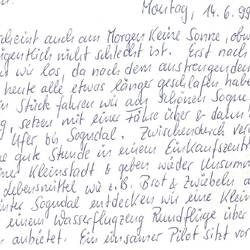 Montag, 14.6.99
scheint auch am Morgen keine Sonne, obw
eigentlich nicht schlecht ist. Erst nach
en wir los, da nach dem anstrengenden
heute alle etwas länger geschlafen habe
in Stück fahren wir am schönen Sogne
, setzen mit einer Fähre über & dann
Ufer bis Sogndal. Zwischendurch ver
e gute Stunde in einem Einkaufszent
Kleinstadt & geben wieder Unsumm
Lebensmittel wie z.B. Brot & Zwiebeln a
inter Sogndal entdecken wir eine Klein
einem Wasserflugzeug Rundflüge über
anbietet. Ein einsamer Pilot sitzt vo